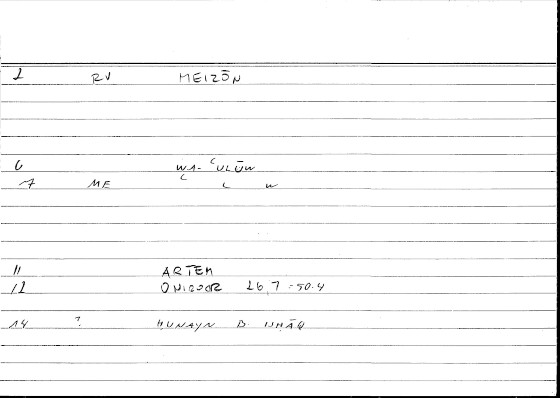 1 RV MEIZŌN
6 WA- ʿULŪW
7 ME
11 ARTEM
12 ONIROCR 26,7 - 50.4
14 ? ḤUNAYN B. ISḤĀQ